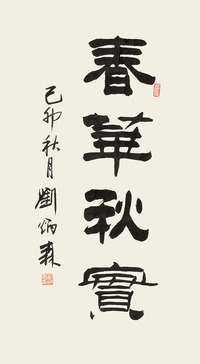 春華秋實
己卯秋月劉炳森